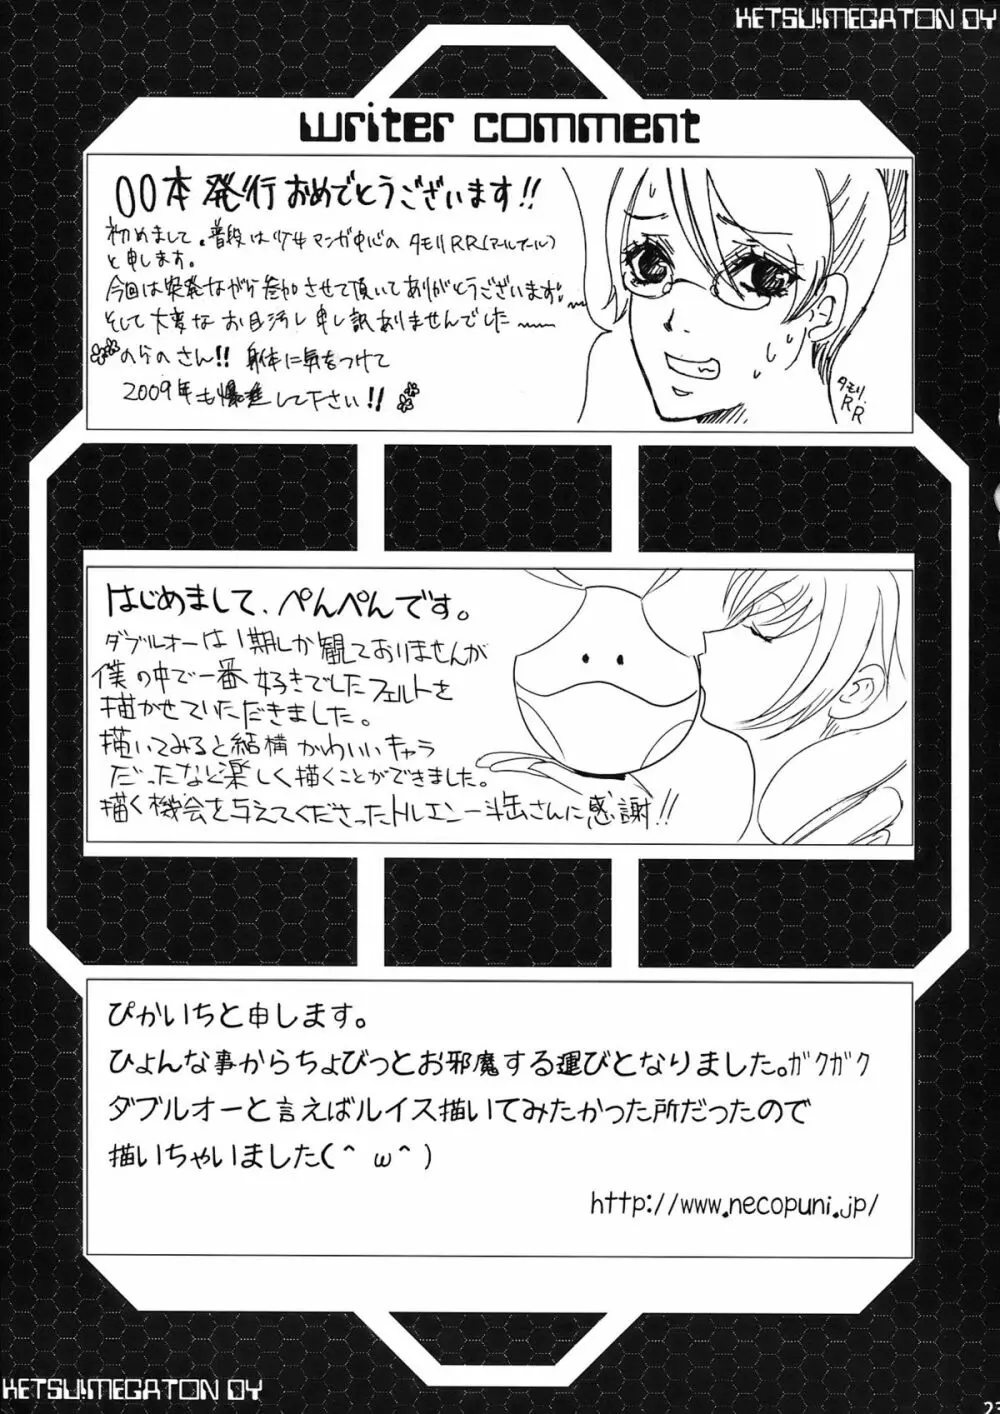 KETSU!MEGATON OY
writer comment
00本 発行 おめでとうございます!!
初めまして。普段は少女マンガ中心の タモリRR(アールアール)
と申します。
今回は突発ながら参加させて頂いてありがとうございます。
そして大変な お目汚し 申し訳ありませんでした
のらのさん!! 身体に気をつけて
2009年も爆進して下さい!!
タモリ.
RR
はじめまして、ぺんぺんです。
ダブルオーは1期しか観ておりませんが
僕の中で一番好きでしたフェルトを
描かせていただきました。
描いてみると結構かわいいキャラ
だったなど楽しく描くことができました。
描く機会を与えてくださったトルエン一斗缶さんに感謝!!
ぴかいちと申します。
ひょんな事からちょびっとお邪魔する運びとなりました。ガクガク
ダブルオーと言えばルイス描いてみたかった所だったので
描いちゃいました(^ω^)
http://www.necopuni.jp/
KETSU!MEGATON OY